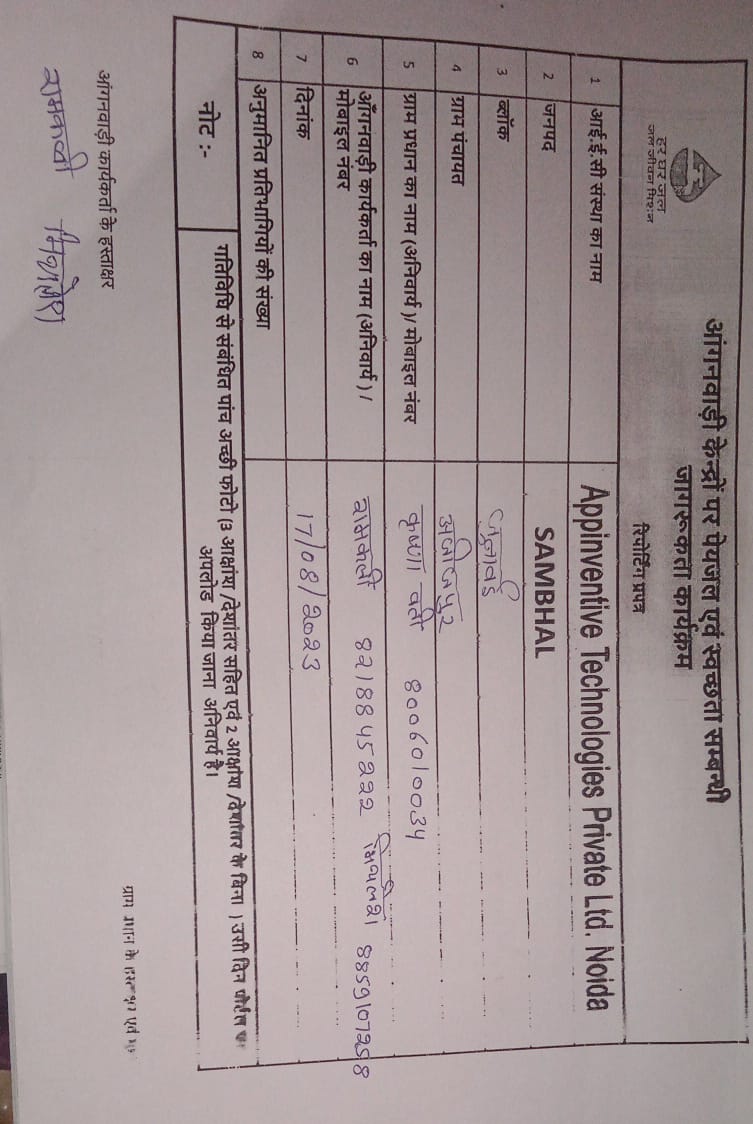 आंगनवाड़ी केन्द्रों पर पेयजल एवं स्वच्छता सम्बन्धी
जागरूकता कार्यक्रम
हर घर जल
जल जीवन मिशन
रिपोर्टिंग प्रपत्र
1 आई.ई.सी संस्था का नाम Appinventive Technologies Private Ltd. Noida
2 जनपद SAMBHAL
3 ब्लॉक जुनावई
4 ग्राम पंचायत अजीजपुर
5 ग्राम प्रधान का नाम (अनिवार्य)/ मोबाइल नंबर कृष्णा वती 8006010034
6 आँगनवाड़ी कार्यकर्ता का नाम (अनिवार्य) / मोबाइल नंबर रामकली 8218845222 8859107258
7 दिनांक 17/08/2023
8 अनुमानित प्रतिभागियों की संख्या
नोट :- गतिविधि से संबंधित पांच अच्छी फोटो (3 आक्षांश /देशांतर सहित एवं 2 आक्षांश /देशांतर के बिना ) उसी दिन पोर्टल
अपलोड किया जाना अनिवार्य है।
आंगनवाड़ी कार्यकर्ता के हस्ताक्षर
ग्राम प्रधान के हस्ताक्षर एवं
रामकली